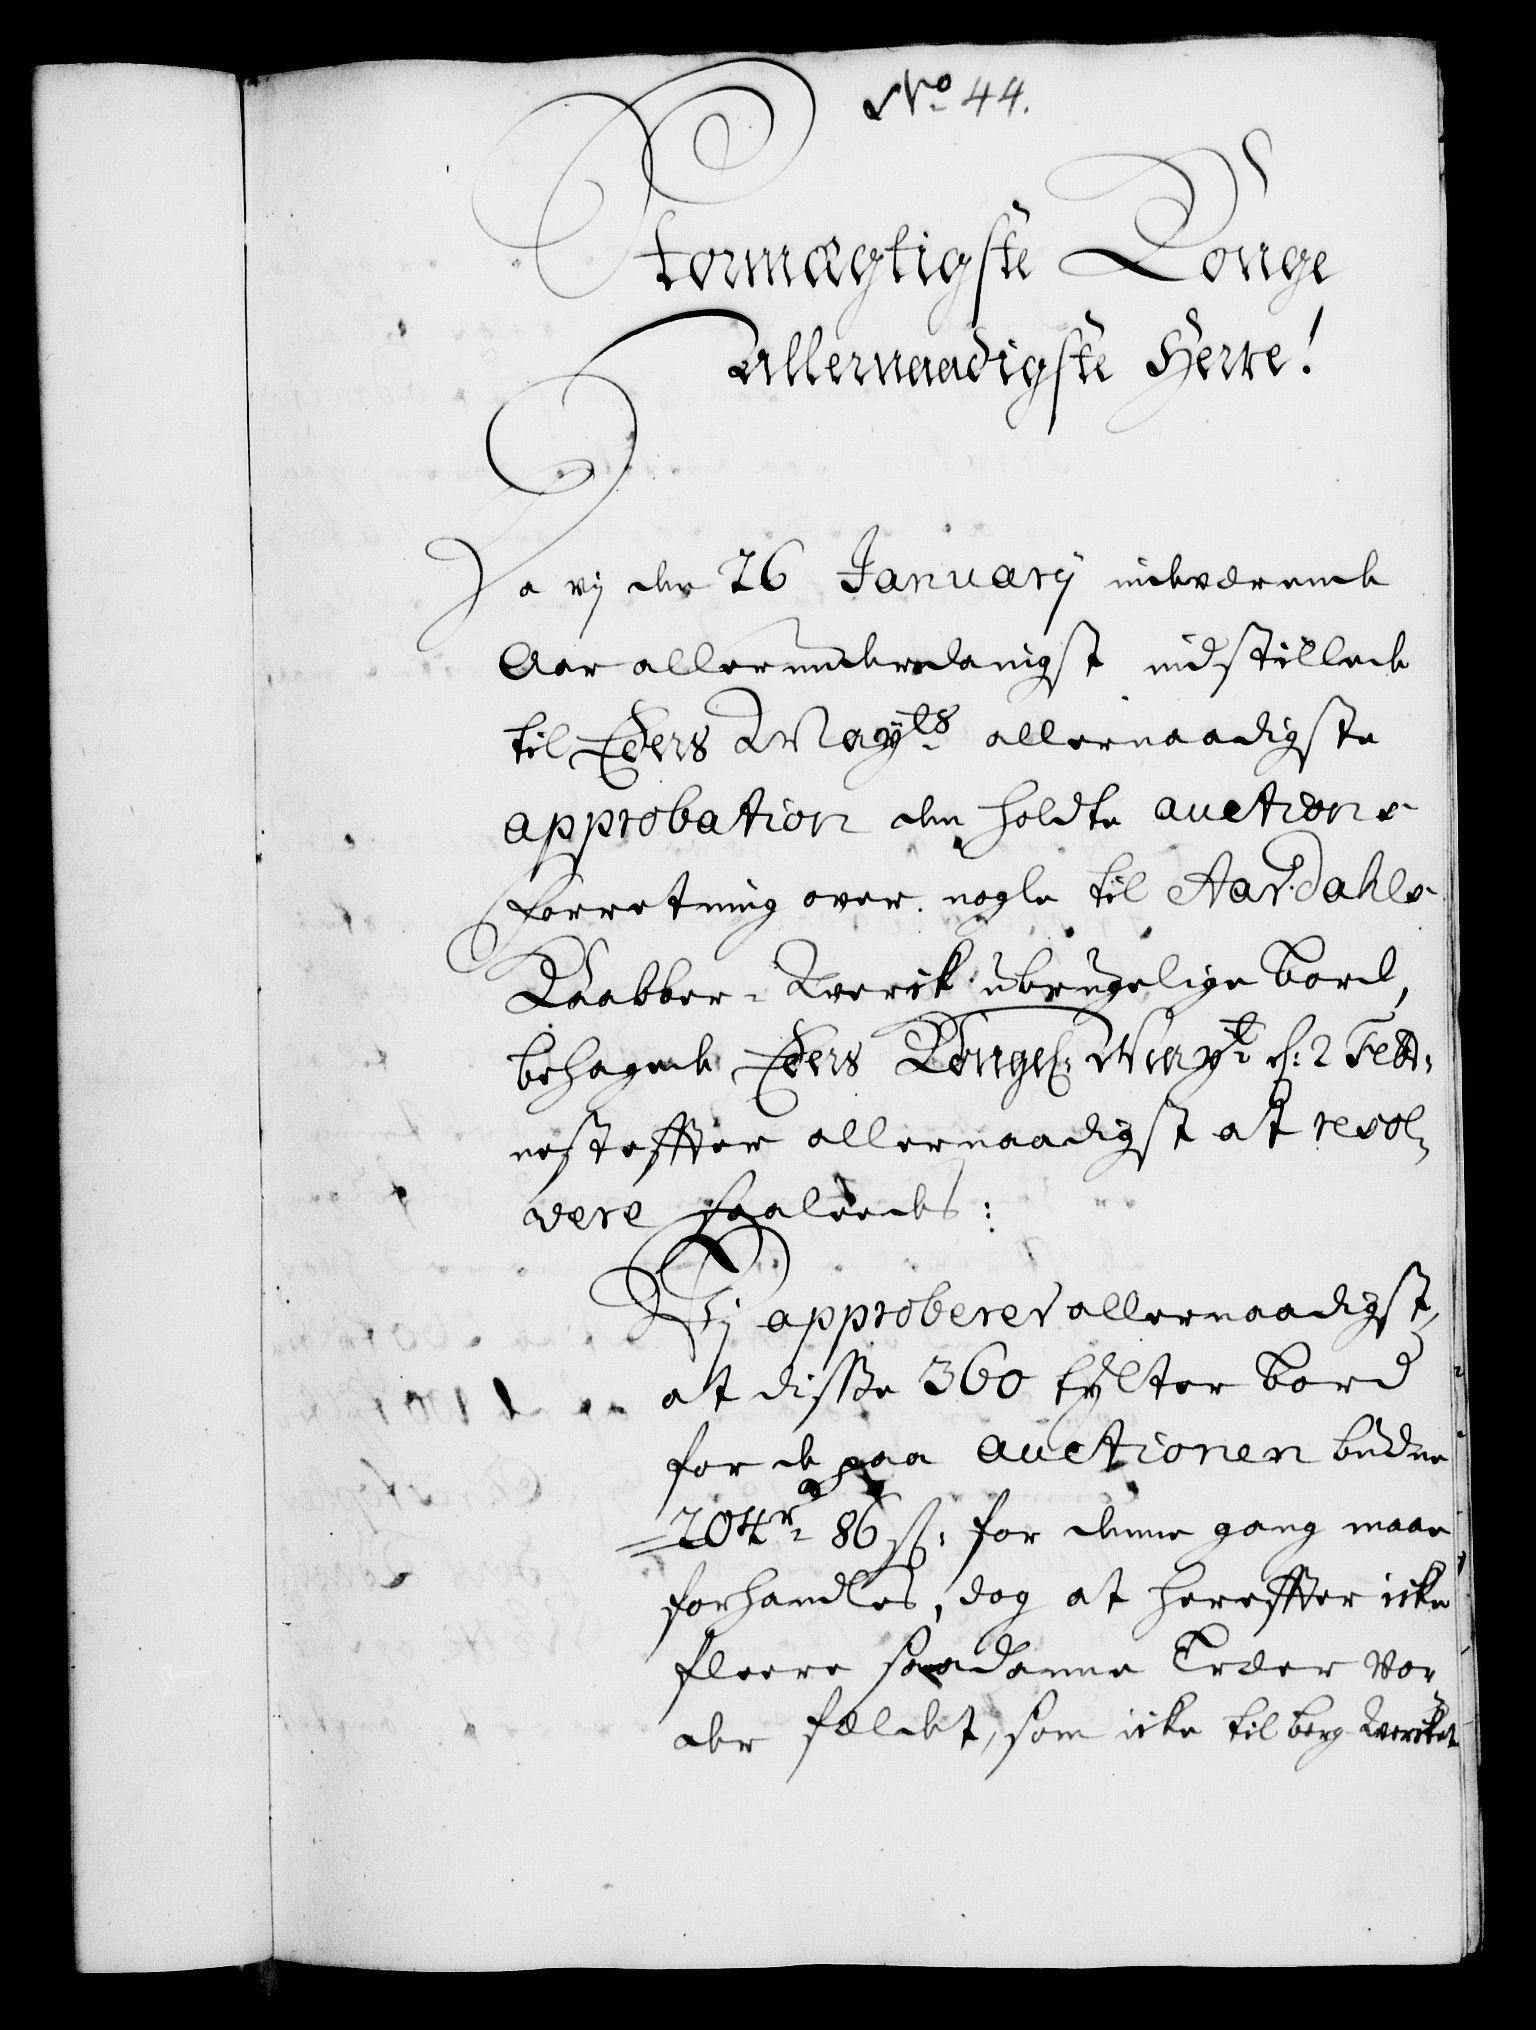 No 44.
Stormægtigste Konge
Allernaadigste Herre!
Da vj den 26 Januarij indeværende
Aar allerunderdanigst indstillede
til Eders Mayts allernaadigste
approbation den holdte auctions-
Forretning over nogle til Aardahls
Kaabber-Werck ubrugelige bord,
behagede Eders Kongel: Mayt d: 2 Febr:
nestefter allernaadigst at resol-
vere saaledes:
Vj approberer allernaadigst,
at disse 360 tylter bord
for de paa auctionen budne
204 r 86 s: for denne gang maae
forhandles, dog at herefter icke
fleere saadanne Træer vor-
der fældet, som icke til berg-Wercket